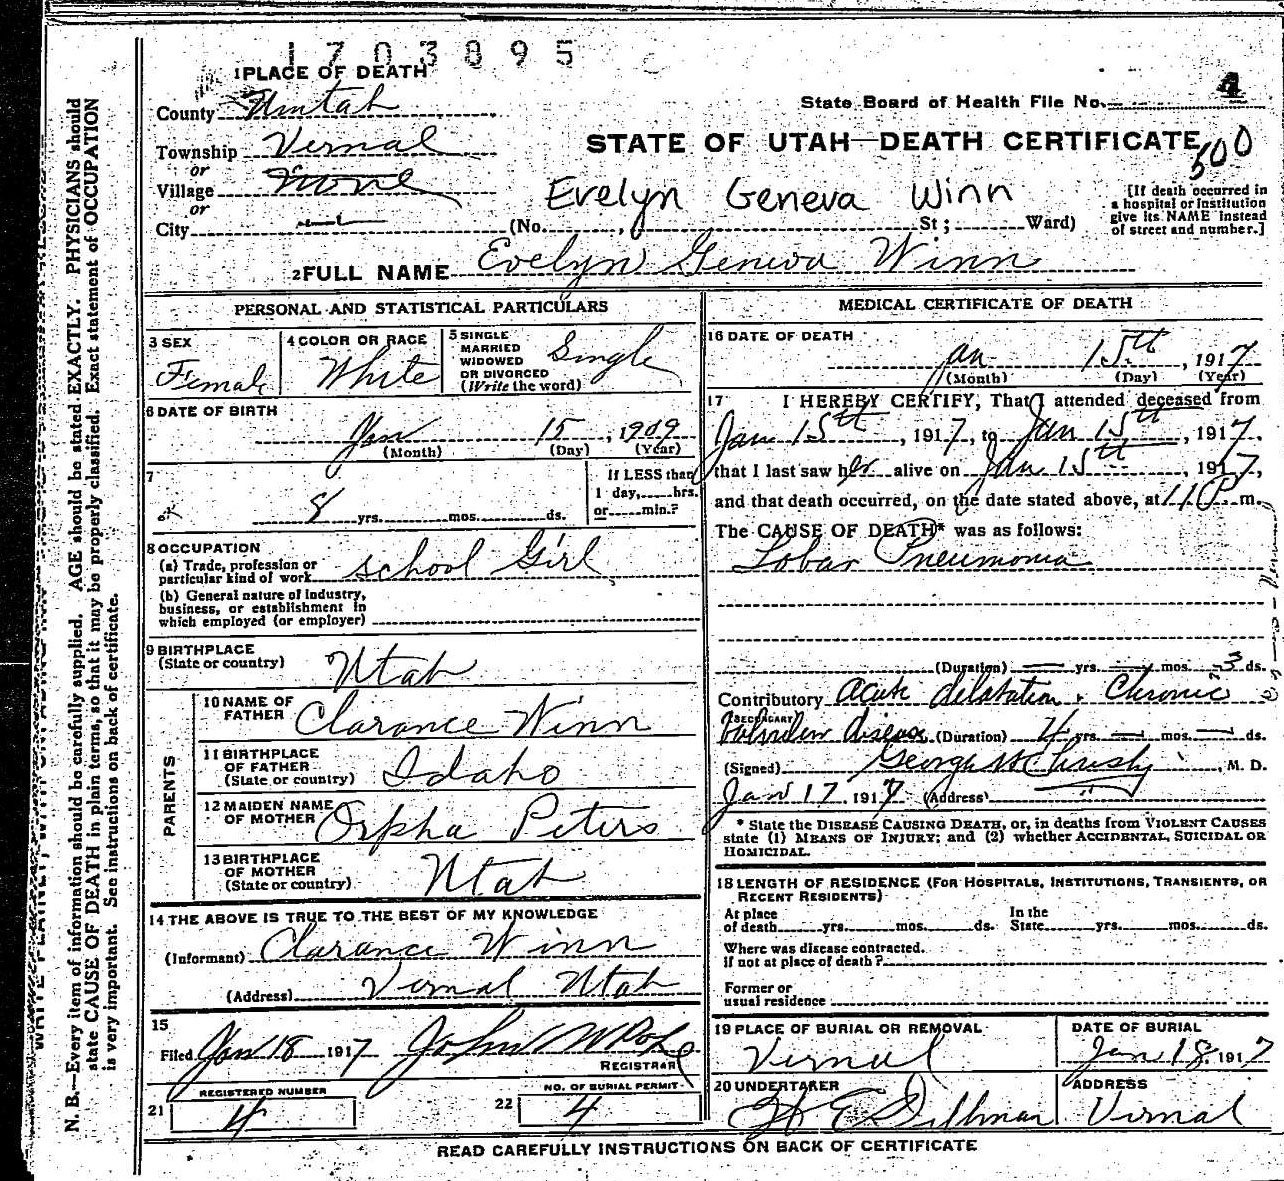 1703895
1 PLACE OF DEATH
County Uintah
State Board of Health File No. 4
Township Vernal
STATE OF UTAH—DEATH CERTIFICATE
500
or
Village None
Evelyn Geneva Winn
or
City (No. , St ; Ward)
[If death occurred in
a hospital or institution
give its NAME instead
of street and number.]
2 FULL NAME Evelyn Geneva Winn
PERSONAL AND STATISTICAL PARTICULARS
3 SEX
Female
4 COLOR OR RACE
White
5 SINGLE
MARRIED
WIDOWED
OR DIVORCED
(Write the word)
Single
6 DATE OF BIRTH
Jan 15, 1909
(Month) (Day) (Year)
7
8 yrs. mos. ds.
If LESS than
1 day, hrs.
or min.?
8 OCCUPATION
(a) Trade, profession or
particular kind of work school Girl
(b) General nature of industry,
business, or establishment in
which employed (or employer)
9 BIRTHPLACE
(State or country) Utah
PARENTS
10 NAME OF
FATHER Clarance Winn
11 BIRTHPLACE
OF FATHER
(State or country) Idaho
12 MAIDEN NAME
OF MOTHER Orpha Peters
13 BIRTHPLACE
OF MOTHER
(State or country) Utah
14 THE ABOVE IS TRUE TO THE BEST OF MY KNOWLEDGE
(Informant) Clarance Winn
(Address) Vernal Utah
15
Filed Jan 18 1917 John
REGISTRAR
REGISTERED NUMBER
21 4
NO. OF BURIAL PERMIT
22 4
MEDICAL CERTIFICATE OF DEATH
16 DATE OF DEATH
Jan 15th, 1917
(Month) (Day) (Year)
17 I HEREBY CERTIFY, That I attended deceased from
Jan 15th, 1917, to Jan 15th, 1917,
that I last saw her alive on Jan 15th, 1917,
and that death occurred, on the date stated above, at 11 P m.
The CAUSE OF DEATH* was as follows:
Lobar Pneumonia
(Duration) yrs. mos. 3 ds.
Contributory Acute dilatation & Chronic
(SECONDARY)
disease (Duration) 4 yrs. mos. ds.
(Signed) George , M. D.
Jan 17, 1917 (Address)
* State the DISEASE CAUSING DEATH, or, in deaths from VIOLENT CAUSES
state (1) MEANS OF INJURY; and (2) whether ACCIDENTAL, SUICIDAL OR
HOMICIDAL.
18 LENGTH OF RESIDENCE (FOR HOSPITALS, INSTITUTIONS, TRANSIENTS, OR
RECENT RESIDENTS)
At place
of death yrs. mos. ds.
In the
State yrs. mos. ds.
Where was disease contracted.
if not at place of death?
Former or
usual residence
19 PLACE OF BURIAL OR REMOVAL
Vernal
DATE OF BURIAL
Jan 18, 1917
20 UNDERTAKER
Dillman
ADDRESS
Vernal
READ CAREFULLY INSTRUCTIONS ON BACK OF CERTIFICATE
N. B.—Every item of information should be carefully supplied. AGE should be stated EXACTLY. PHYSICIANS should
state CAUSE OF DEATH in plain terms, so that it may be properly classified. Exact statement of OCCUPATION
is very important. See instructions on back of certificate.